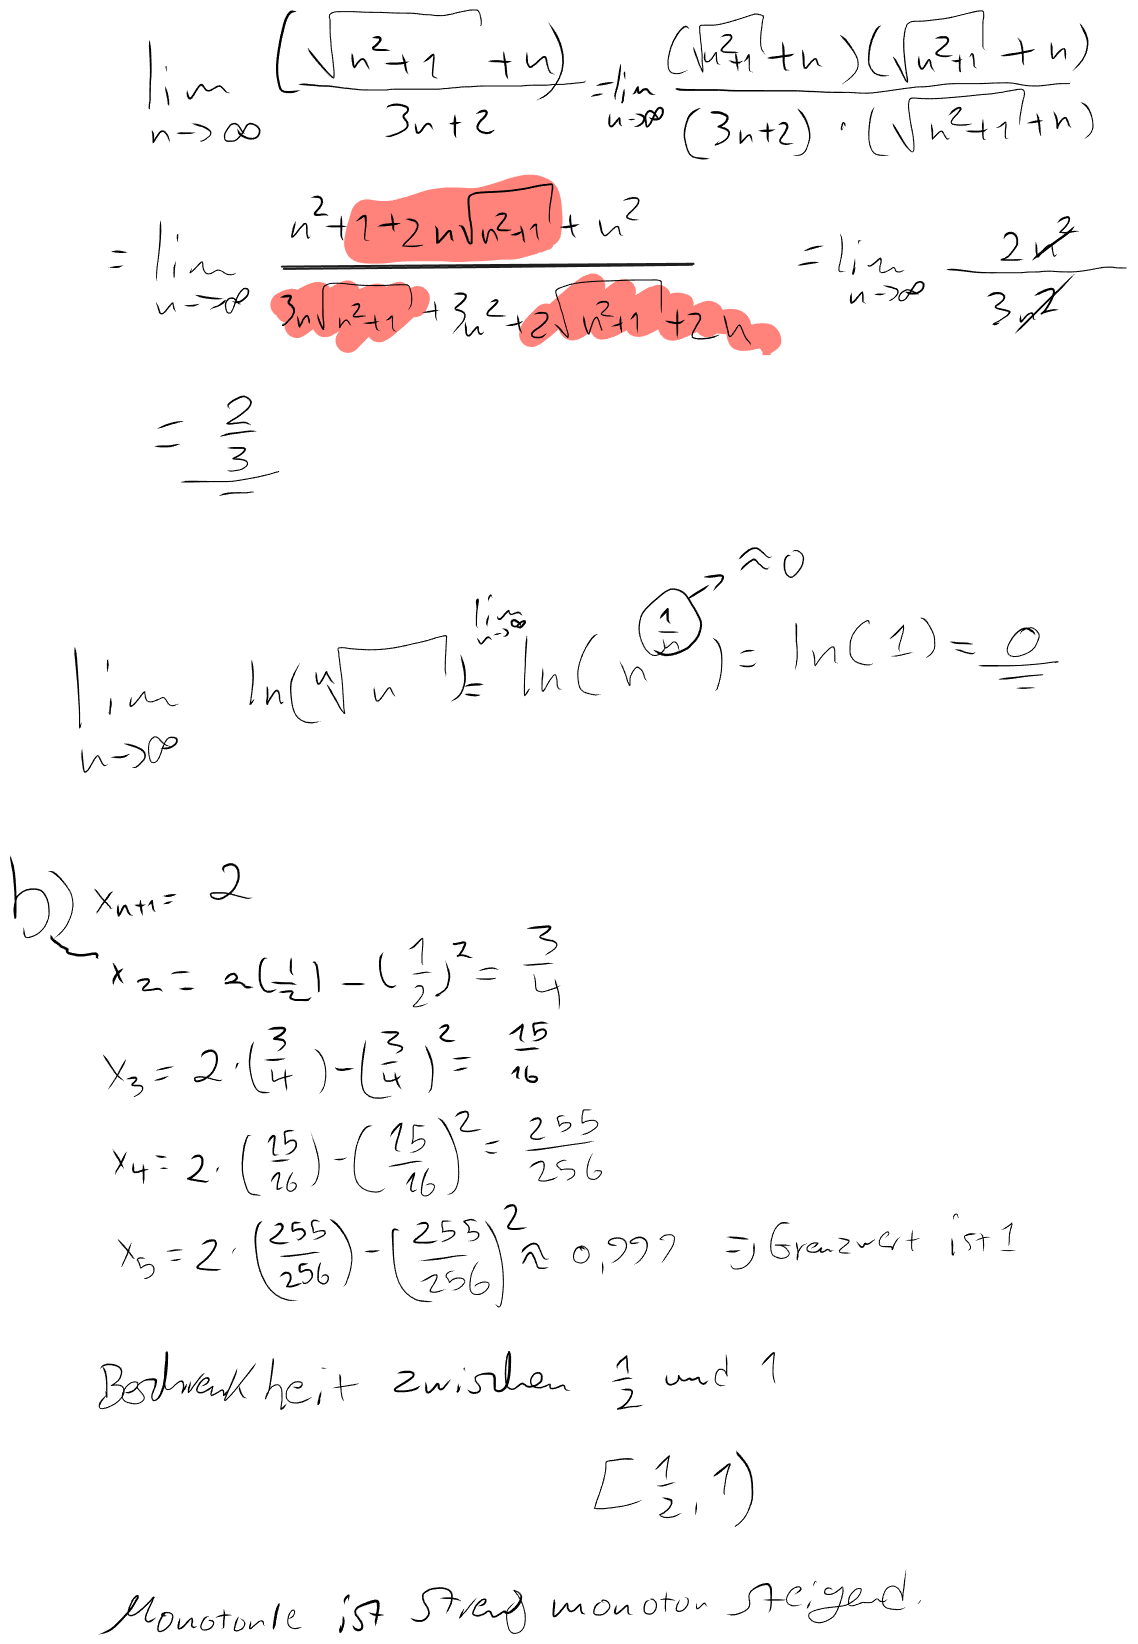 lim n→∞ (√(n²+1) + n) / (3n+2) = lim n→∞ (√(n²+1) + n)(√(n²+1) + n) / ((3n+2) · (√(n²+1) + n))
= lim n→∞ (n²+1+2n√(n²+1) + n²) / (3n√(n²+1) + 3n² + 2√(n²+1) + 2n) = lim n→∞ 2n² / 3n²
= 2/3
lim n→∞ ln(ⁿ√n) = lim n→∞ ln(n^(1/n)) = ln(1) = 0
→ ≈ 0
b) xₙ₊₁ = 2
x₂ = 2(1/2) - (1/2)² = 3/4
x₃ = 2 · (3/4) - (3/4)² = 15/16
x₄ = 2 · (15/16) - (15/16)² = 255/256
x₅ = 2 · (255/256) - (255/256)² ≈ 0,999 ⇒ Grenzwert ist 1
Beschrenkheit zwischen 1/2 und 1
[1/2, 1)
Monotonie ist streng monoton steigend.